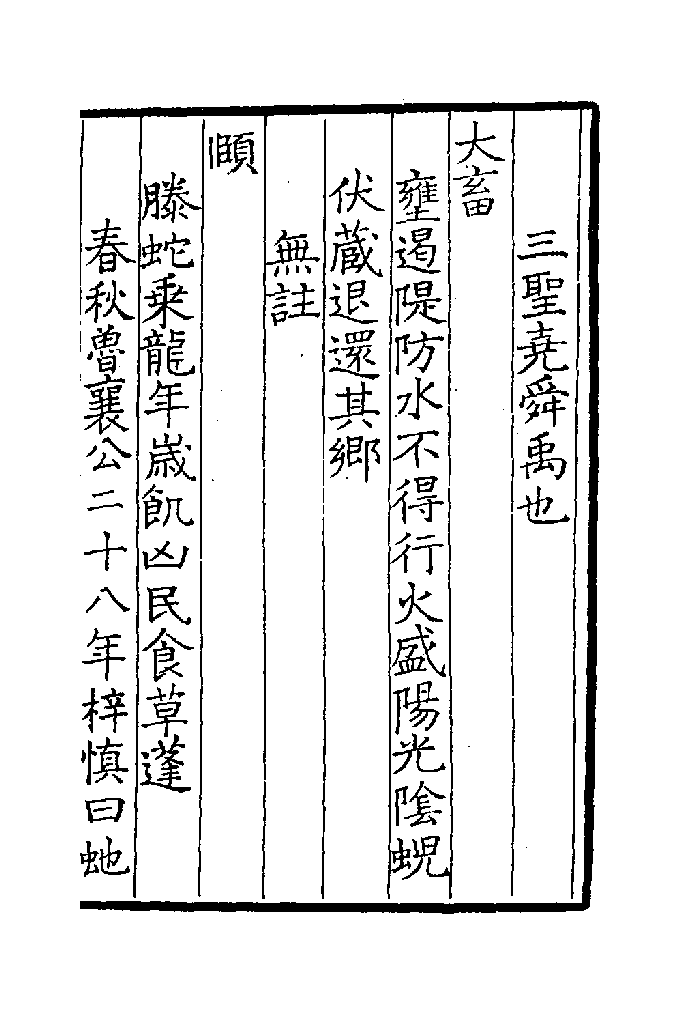 三聖堯舜禹也
大畜
壅遏隄防水不得行火盛陽光陰蜺
伏蔵退還其鄉
無註
頤
滕蛇乗龍年歳飢凶民食草蓬
春秋魯襄公二十八年梓慎曰虵